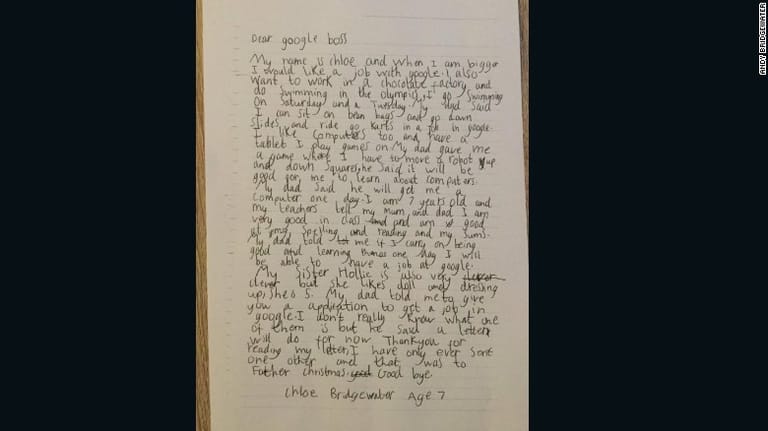 Dear google boss
My name is Chloe and when I am bigger
I would like a job with google. I also
want to work in a chocolate factory and
do swimming in the olympics. I go swimming
on Saturday and a Tuesday. My dad said
I can sit on bean bags and go down
slides and ride go karts in a job in google.
I like computers too and have a
tablet I play games on. My dad gave me
a game where I have to move a robot up
and down squares, he said it will be
good for me to learn about computers.
My dad said he will get me a
computer one day. I am 7 years old and
my teachers tell my mum and dad I am
very good in class and am good
at my spelling and reading and my sums.
My dad told me if I carry on being
good and learning then one day I will
be able to have a job at google.
My sister Hollie is also very
clever but she likes doll and dressing
up, she's 5. My dad told me to give
you a application to get a job in
google. I don't really know what one
of them is but he said a letter
will do for now Thankyou for
reading my letter, I have only ever sent
one other and that was to
Father christmas. Good bye
Chloe Bridgewater Age 7
ANDY BRIDGEWATER